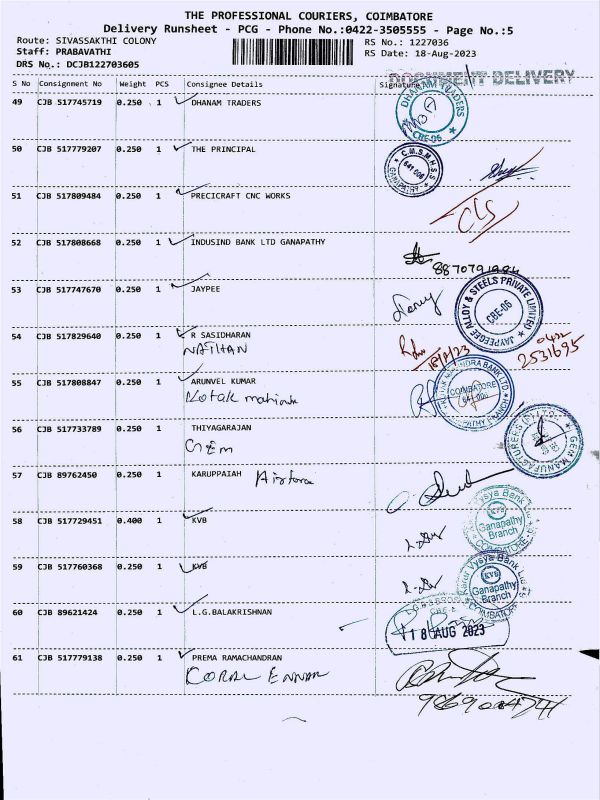 THE PROFESSIONAL COURIERS, COIMBATORE
Delivery Runsheet - PCG - Phone No.:0422-3505555 - Page No.:5
Route: SIVASSAKTHI COLONY RS No.: 1227036
Staff: PRABAVATHI RS Date: 18-Aug-2023
DRS No.: DCJB122703605
DOCUMENT DELIVERY
S No Consignment No Weight PCS Consignee Details Signature
49 CJB 517745719 0.250 1 DHANAM TRADERS
DHANAM TRADERS CBE-06
50 CJB 517779207 0.250 1 THE PRINCIPAL
C.M.S.M.H.S.S 641 006 GANAPATHY
51 CJB 517809484 0.250 1 PRECICRAFT CNC WORKS
52 CJB 517808668 0.250 1 INDUSIND BANK LTD GANAPATHY
53 CJB 517747670 0.250 1 JAYPEE
JAYPEEDGEE ALLOY & STEELS PRIVATE LIMITED CBE-06
54 CJB 517829640 0.250 1 R SASIDHARAN
NATHAN 18/8/23 0422 2531695
55 CJB 517808847 0.250 1 ARUNVEL KUMAR
Kotak COIMBATORE
56 CJB 517733789 0.250 1 THIYAGARAJAN
Gem GEM MANUFACTURERS
57 CJB 89762450 0.250 1 KARUPPAIAH
58 CJB 517729451 0.400 1 KVB
Vysya Bank KVB Ganapathy Branch COIMBATORE
59 CJB 517760368 0.250 1 KVB
Karur Vysya Bank Ltd KVB Ganapathy Branch COIMBATORE
60 CJB 89621424 0.250 1 L.G.BALAKRISHNAN
18 AUG 2023
61 CJB 517779138 0.250 1 PREMA RAMACHANDRAN
CORAL